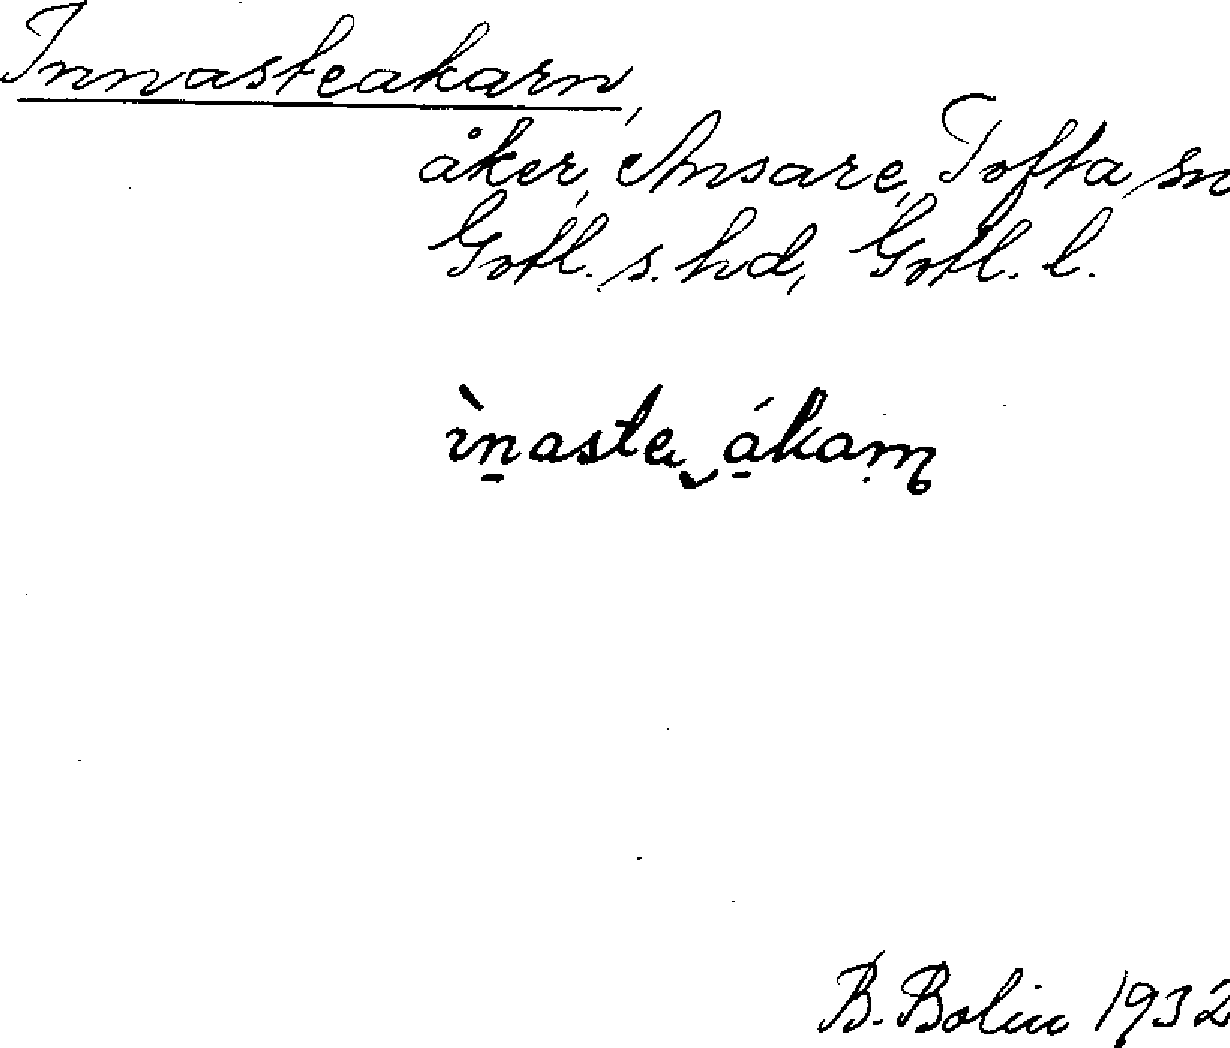 Innasteakarn,
åker, Ansare, Tofta sn
Gotl. s. hd, Gotl. l.
B. Bolin 1932